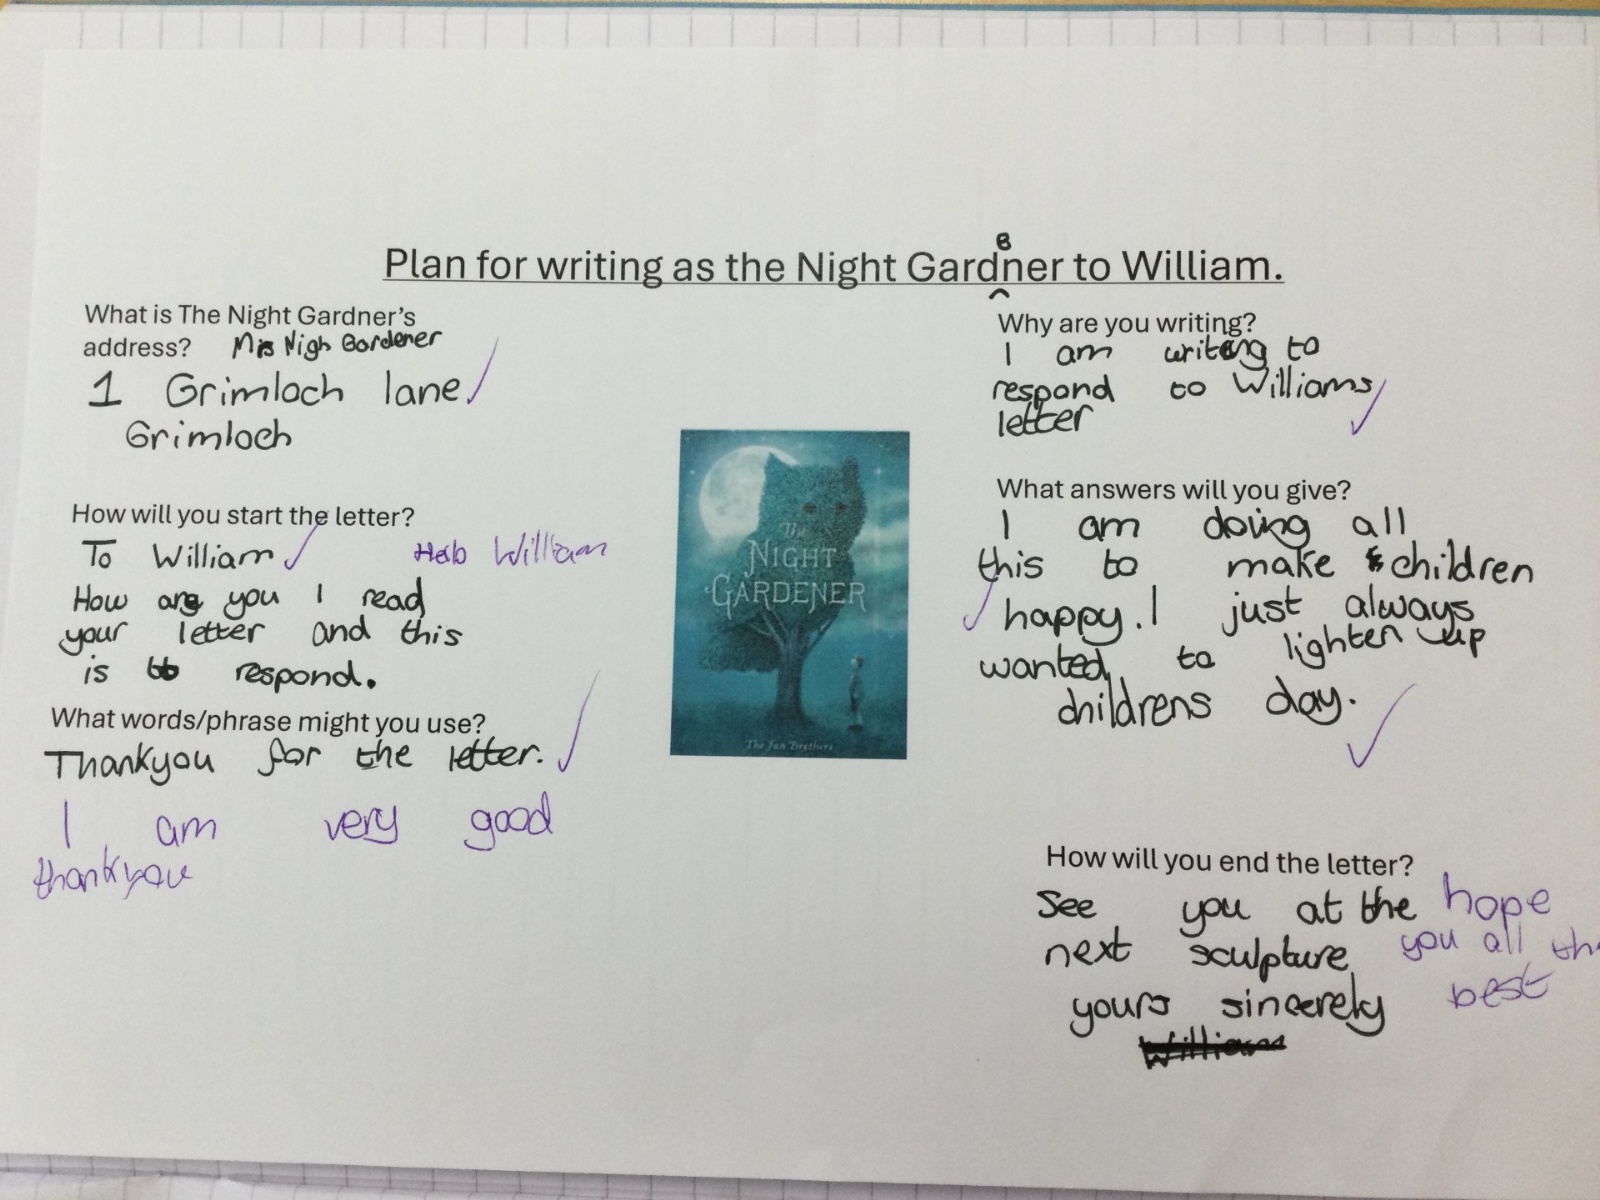 Plan for writing as the Night Gardener to William.
What is The Night Gardner's
address? Nigh Gardener
1 Grimloch lane
Grimloch
How will you start the letter?
To William Hello William
How are you I read
your letter and this
is to respond.
What words/phrase might you use?
Thankyou for the letter.
I am very good
thankyou
The
NIGHT
GARDENER
The Fan Brothers
Why are you writing?
I am writing to
respond to Williams
letter
What answers will you give?
I am doing all
this to make children
happy. I just always
wanted to lighten up
childrens day.
How will you end the letter?
See you at the hope
next sculpture you all
yours sincerely best
William